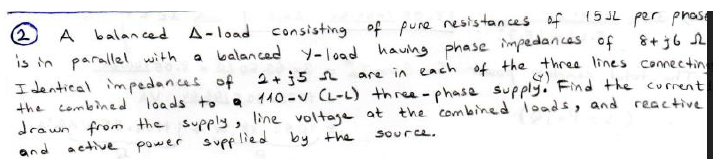 ② A balanced Δ-load consisting of pure resistances of 15Ω per phase
is in parallel with a balanced Y-load having phase impedances of 8+j6 Ω
Identical impedances of 2+j5 Ω are in each of the three lines connectin
the combined loads to a 110-V (L-L) three-phase supply. (Y) Find the current
drawn from the supply, line voltage at the combined loads, and reactive
and active power supplied by the source.